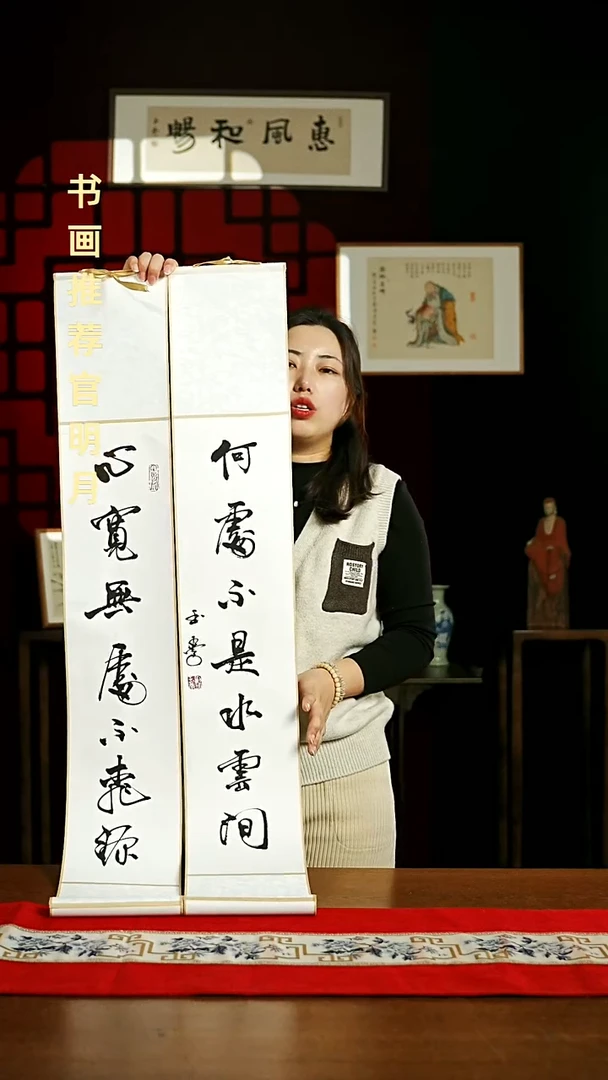 惠風和暢
书画推荐官明月
心寬無處不桃源
何處不是水雲間